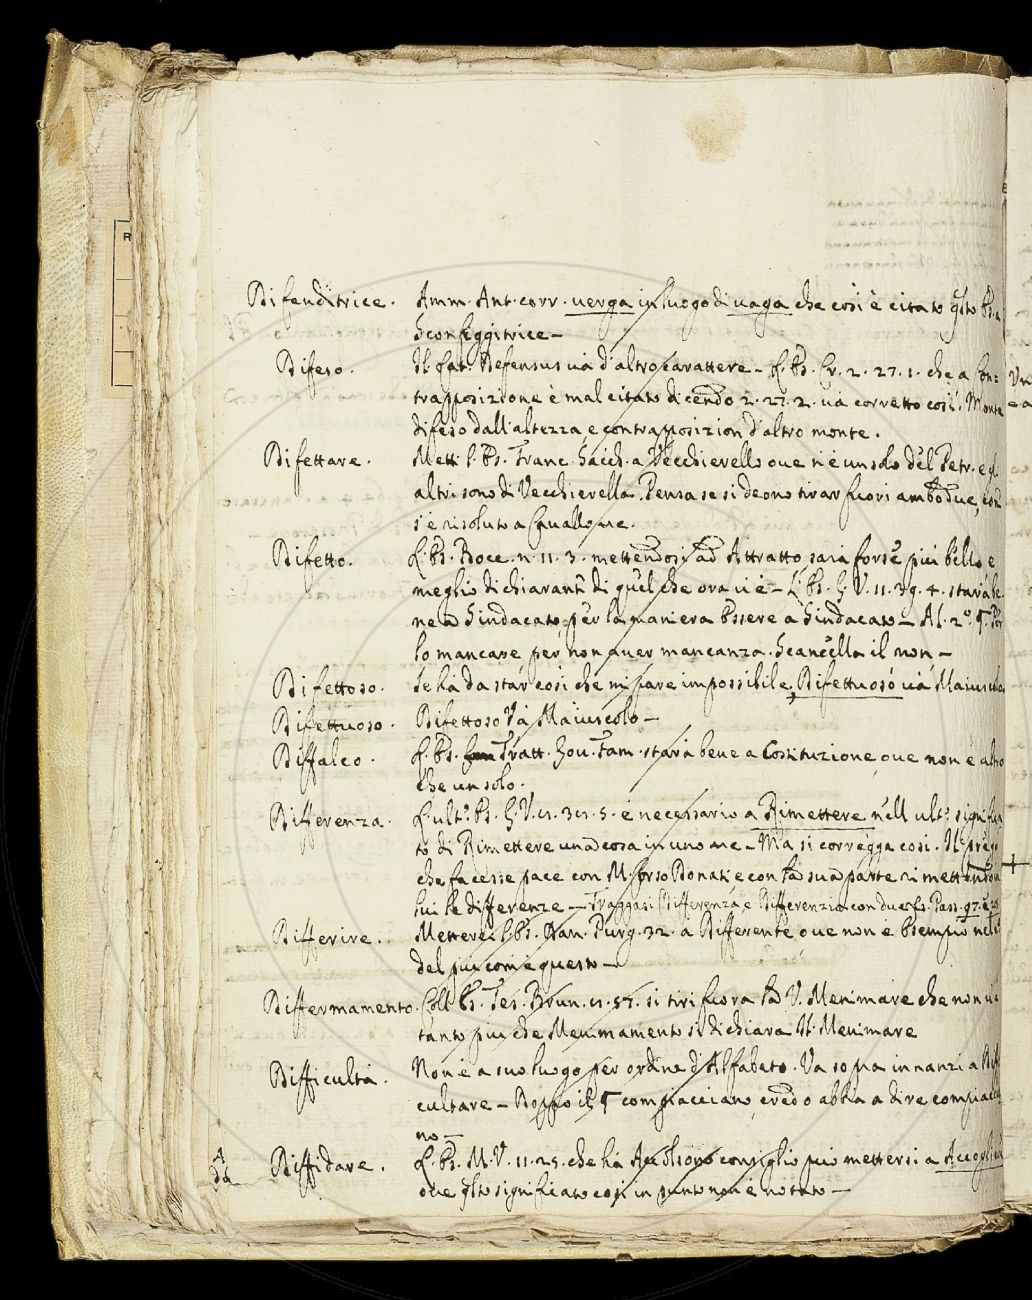 Difenditrice. Amm. Ant. corr. uerga in luogo di uaga che così è citato qsto Es. a
Sconfiggitrice –
Difeso. Il Lat. Defensus uà d'altro carattere – L'Es. Cr. 2. 27. 1. che a Con=
trapposizione è mal citato dicendo 2. 27. 2. uà corretto così. Monte
difeso dall'altezza, e contrapposizion d'altro monte.
Difettare. Metti l'Es. Franc. Sacch. a Vecchierello oue ui è un solo del Petr. e gl'
altri sono di Vecchierella. Pensa se si deono tirar fuori ambodue, com
s'è risoluto a Cauallo
Difetto. L'Es. Bocc. n. 11. 3. mettendosi ad Attratto sarà forse più bello e
meglio dichiarante di quel che ora ui è – L'Es. G. V. 11. 39. 4. starà be
ne a Sindacato, per la maniera Essere a Sindacato – Al 2.º ¶. Per
lo mancare per non auer mancanza. Scancella il non –
Difettoso. Se hà da star così che mi pare impossibile, Difettuoso uà Maiuscolo
Difettuoso. Difettoso Và Maiuscolo –
Diffalco. L'Es. Tratt. Gou. Fam. starà bene a Costituzione oue non è altro
che un solo.
Differenza. L'ult.º Es. G. V. è necessario a Rimettere nell'ult.º significa
to di Rimettere una cosa in uno – Ma si corregga così. Il pregò
che facesse pace con M. Corso Donati e con la sua parte rimettendo in
lui le differenze – Traggasi Differenza, e Differenzia con due Es. Pass. 97.
Differire. Metterei l'Es. Dan. Purg. 32. a Differente oue non è Esempio nel n.º
del più com'è questo –
Differmamento. Coll'Es. Tes. Brun. si tiri fuora la V. Menimare che non ui è
tanto più che Menimamento si dichiara Il Menimare
Difficultà. Non è a suo luogo per ordine d'Alfabeto. Va sopra innanzi a Diffi
cultare – Doppo il ¶ compiacciano, credo abbia a dire compiaccia
no –
A
Diffidare. L'Es. M. V. 11. 25. che hà Accolsono consiglio può mettersi a Accogliere
oue qsto significato così in punto non è notato –